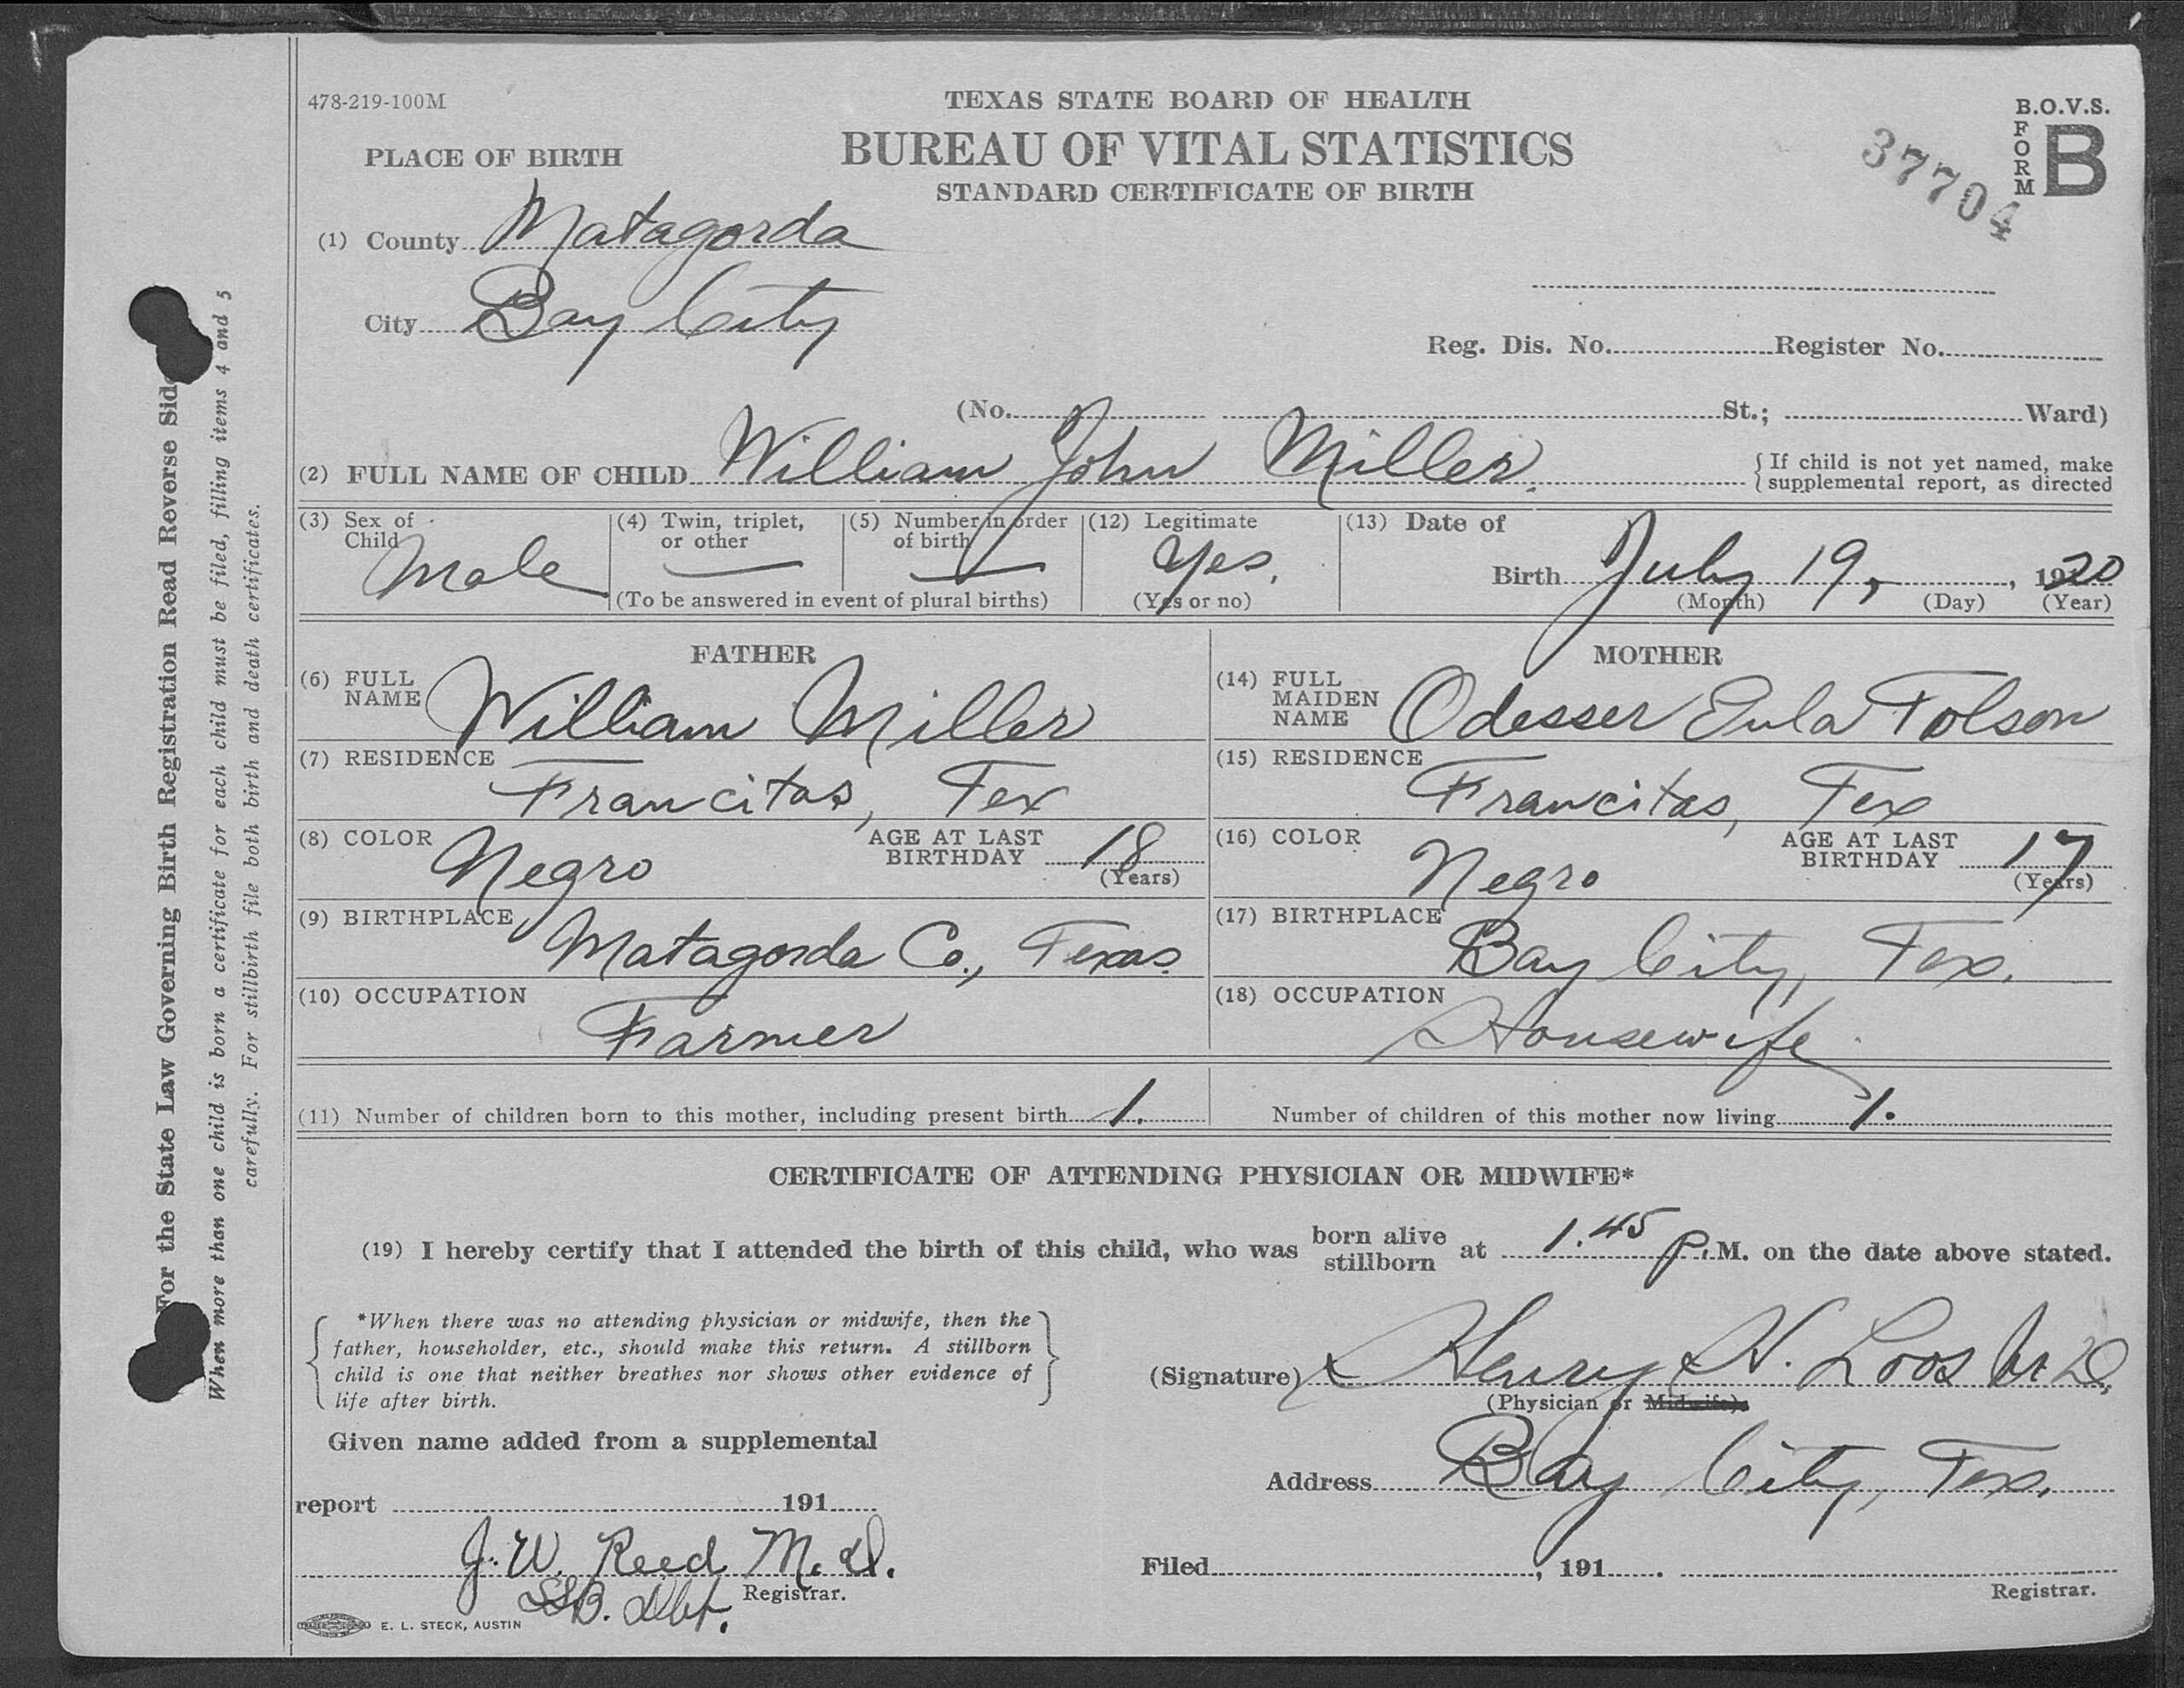 478-219-100M
TEXAS STATE BOARD OF HEALTH
B.O.V.S.
FORM B
PLACE OF BIRTH
BUREAU OF VITAL STATISTICS
37704
STANDARD CERTIFICATE OF BIRTH
(1) County Matagorda
City Bay City
Reg. Dis. No. Register No.
(No. St.; Ward)
(2) FULL NAME OF CHILD William John Miller. {If child is not yet named, make supplemental report, as directed
(3) Sex of Child Male
(4) Twin, triplet, or other —
(5) Number in order of birth —
(To be answered in event of plural births)
(12) Legitimate Yes. (Yes or no)
(13) Date of Birth July 19, , 1920
(Month) (Day) (Year)
FATHER
(6) FULL NAME William Miller
(7) RESIDENCE Francitas, Tex
(8) COLOR Negro AGE AT LAST BIRTHDAY 18 (Years)
(9) BIRTHPLACE Matagorda Co., Texas.
(10) OCCUPATION Farmer
MOTHER
(14) FULL MAIDEN NAME Odesser Eula Tolson
(15) RESIDENCE Francitas, Tex
(16) COLOR Negro AGE AT LAST BIRTHDAY 17 (Years)
(17) BIRTHPLACE Bay City, Tex.
(18) OCCUPATION Housewife
(11) Number of children born to this mother, including present birth 1. Number of children of this mother now living 1.
CERTIFICATE OF ATTENDING PHYSICIAN OR MIDWIFE*
(19) I hereby certify that I attended the birth of this child, who was born alive stillborn at 1.45 P.M. on the date above stated.
*When there was no attending physician or midwife, then the
father, householder, etc., should make this return. A stillborn
child is one that neither breathes nor shows other evidence of
life after birth.
(Signature) Henry H. Loos M.D.
(Physician or Midwife).
Given name added from a supplemental
report 191
Address Bay City, Tex.
J. W. Reed M. D.
Registrar.
Filed , 191 .
Registrar.
E. L. STECK, AUSTIN
For the State Law Governing Birth Registration Read Reverse Side
When more than one child is born a certificate for each child must be filed, filling items 4 and 5
carefully. For stillbirth file both birth and death certificates.